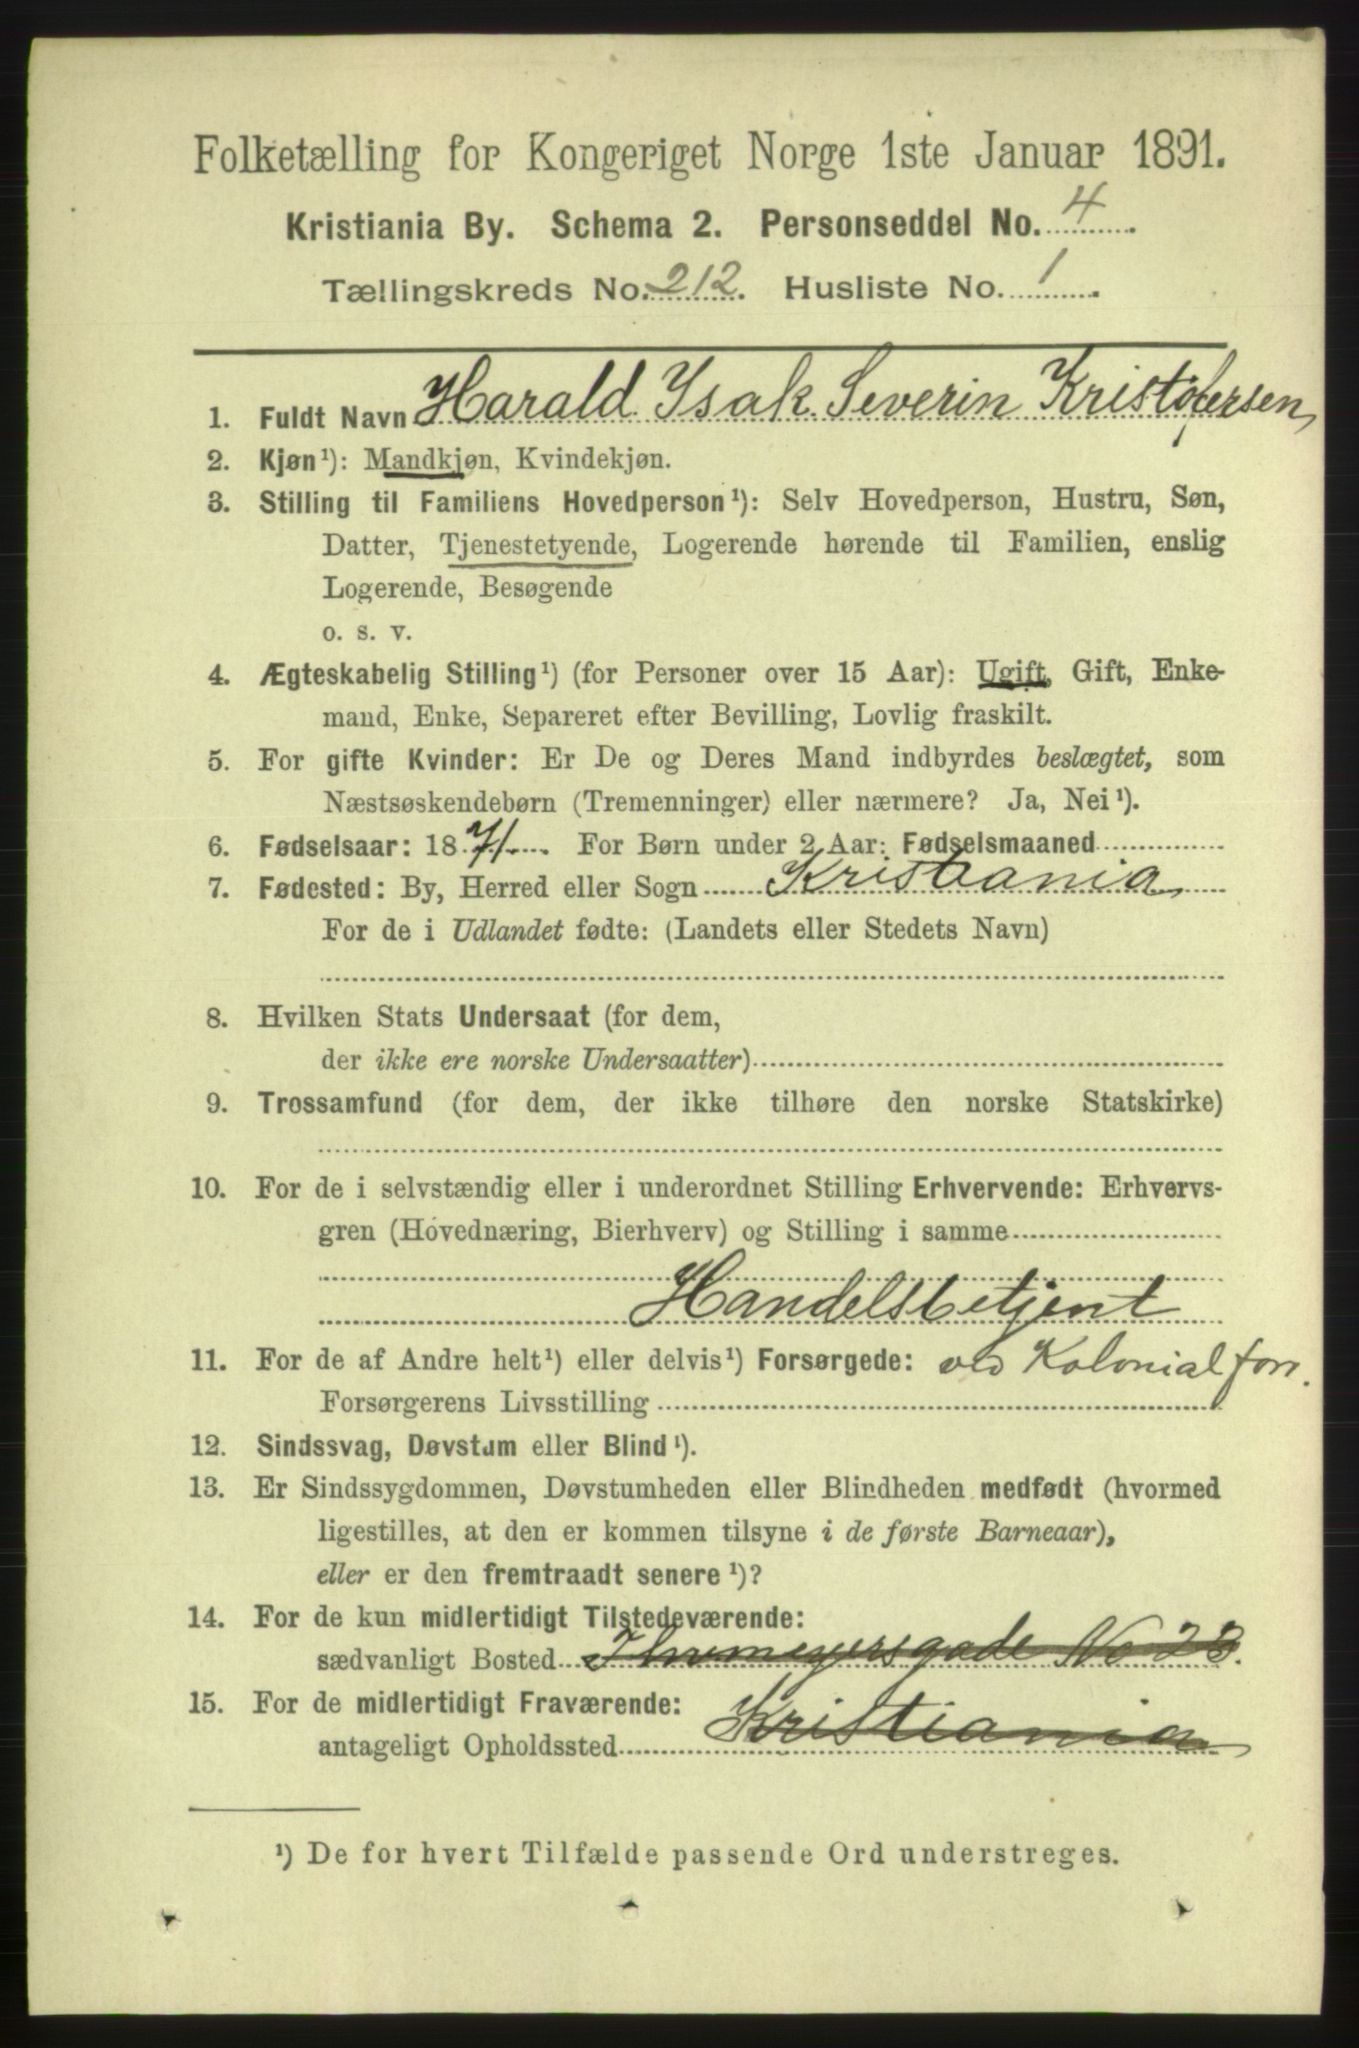 Folketælling for Kongeriget Norge 1ste Januar 1891.
Kristiania By. Schema 2. Personseddel No. 4
Tællingskreds No. 212. Husliste No. 1
1. Fuldt Navn Harald Isak Severin Kristofersen
2. Kjøn¹): Mandkjøn, Kvindekjøn.
3. Stilling til Familiens Hovedperson¹): Selv Hovedperson, Hustru, Søn,
Datter, Tjenestetyende, Logerende hørende til Familien, enslig
Logerende, Besøgende
o. s. v.
4. Ægteskabelig Stilling¹) (for Personer over 15 Aar): Ugift, Gift, Enke-
mand, Enke, Separeret efter Bevilling, Lovlig fraskilt.
5. For gifte Kvinder: Er De og Deres Mand indbyrdes beslægtet, som
Næstsøskendebørn (Tremenninger) eller nærmere? Ja, Nei¹).
6. Fødselsaar: 1871. For Børn under 2 Aar: Fødselsmaaned
7. Fødested: By, Herred eller Sogn Kristiania
For de i Udlandet fødte: (Landets eller Stedets Navn)
8. Hvilken Stats Undersaat (for dem,
der ikke ere norske Undersaatter)
9. Trossamfund (for dem, der ikke tilhøre den norske Statskirke)
10. For de i selvstændig eller i underordnet Stilling Erhvervende: Erhvervs-
gren (Hovednæring, Bierhverv) og Stilling i samme
Handelsbetjent
11. For de af Andre helt¹) eller delvis¹) Forsørgede: ved Kolonialforr.
Forsørgerens Livsstilling
12. Sindssvag, Døvstum eller Blind¹).
13. Er Sindssygdommen, Døvstumheden eller Blindheden medfødt (hvormed
ligestilles, at den er kommen tilsyne i de første Barneaar),
eller er den fremtraadt senere¹)?
14. For de kun midlertidigt Tilstedeværende:
sædvanligt Bosted Thurmeyersgade No 23.
15. For de midlertidigt Fraværende:
antageligt Opholdssted Kristiania
¹) De for hvert Tilfælde passende Ord understreges.